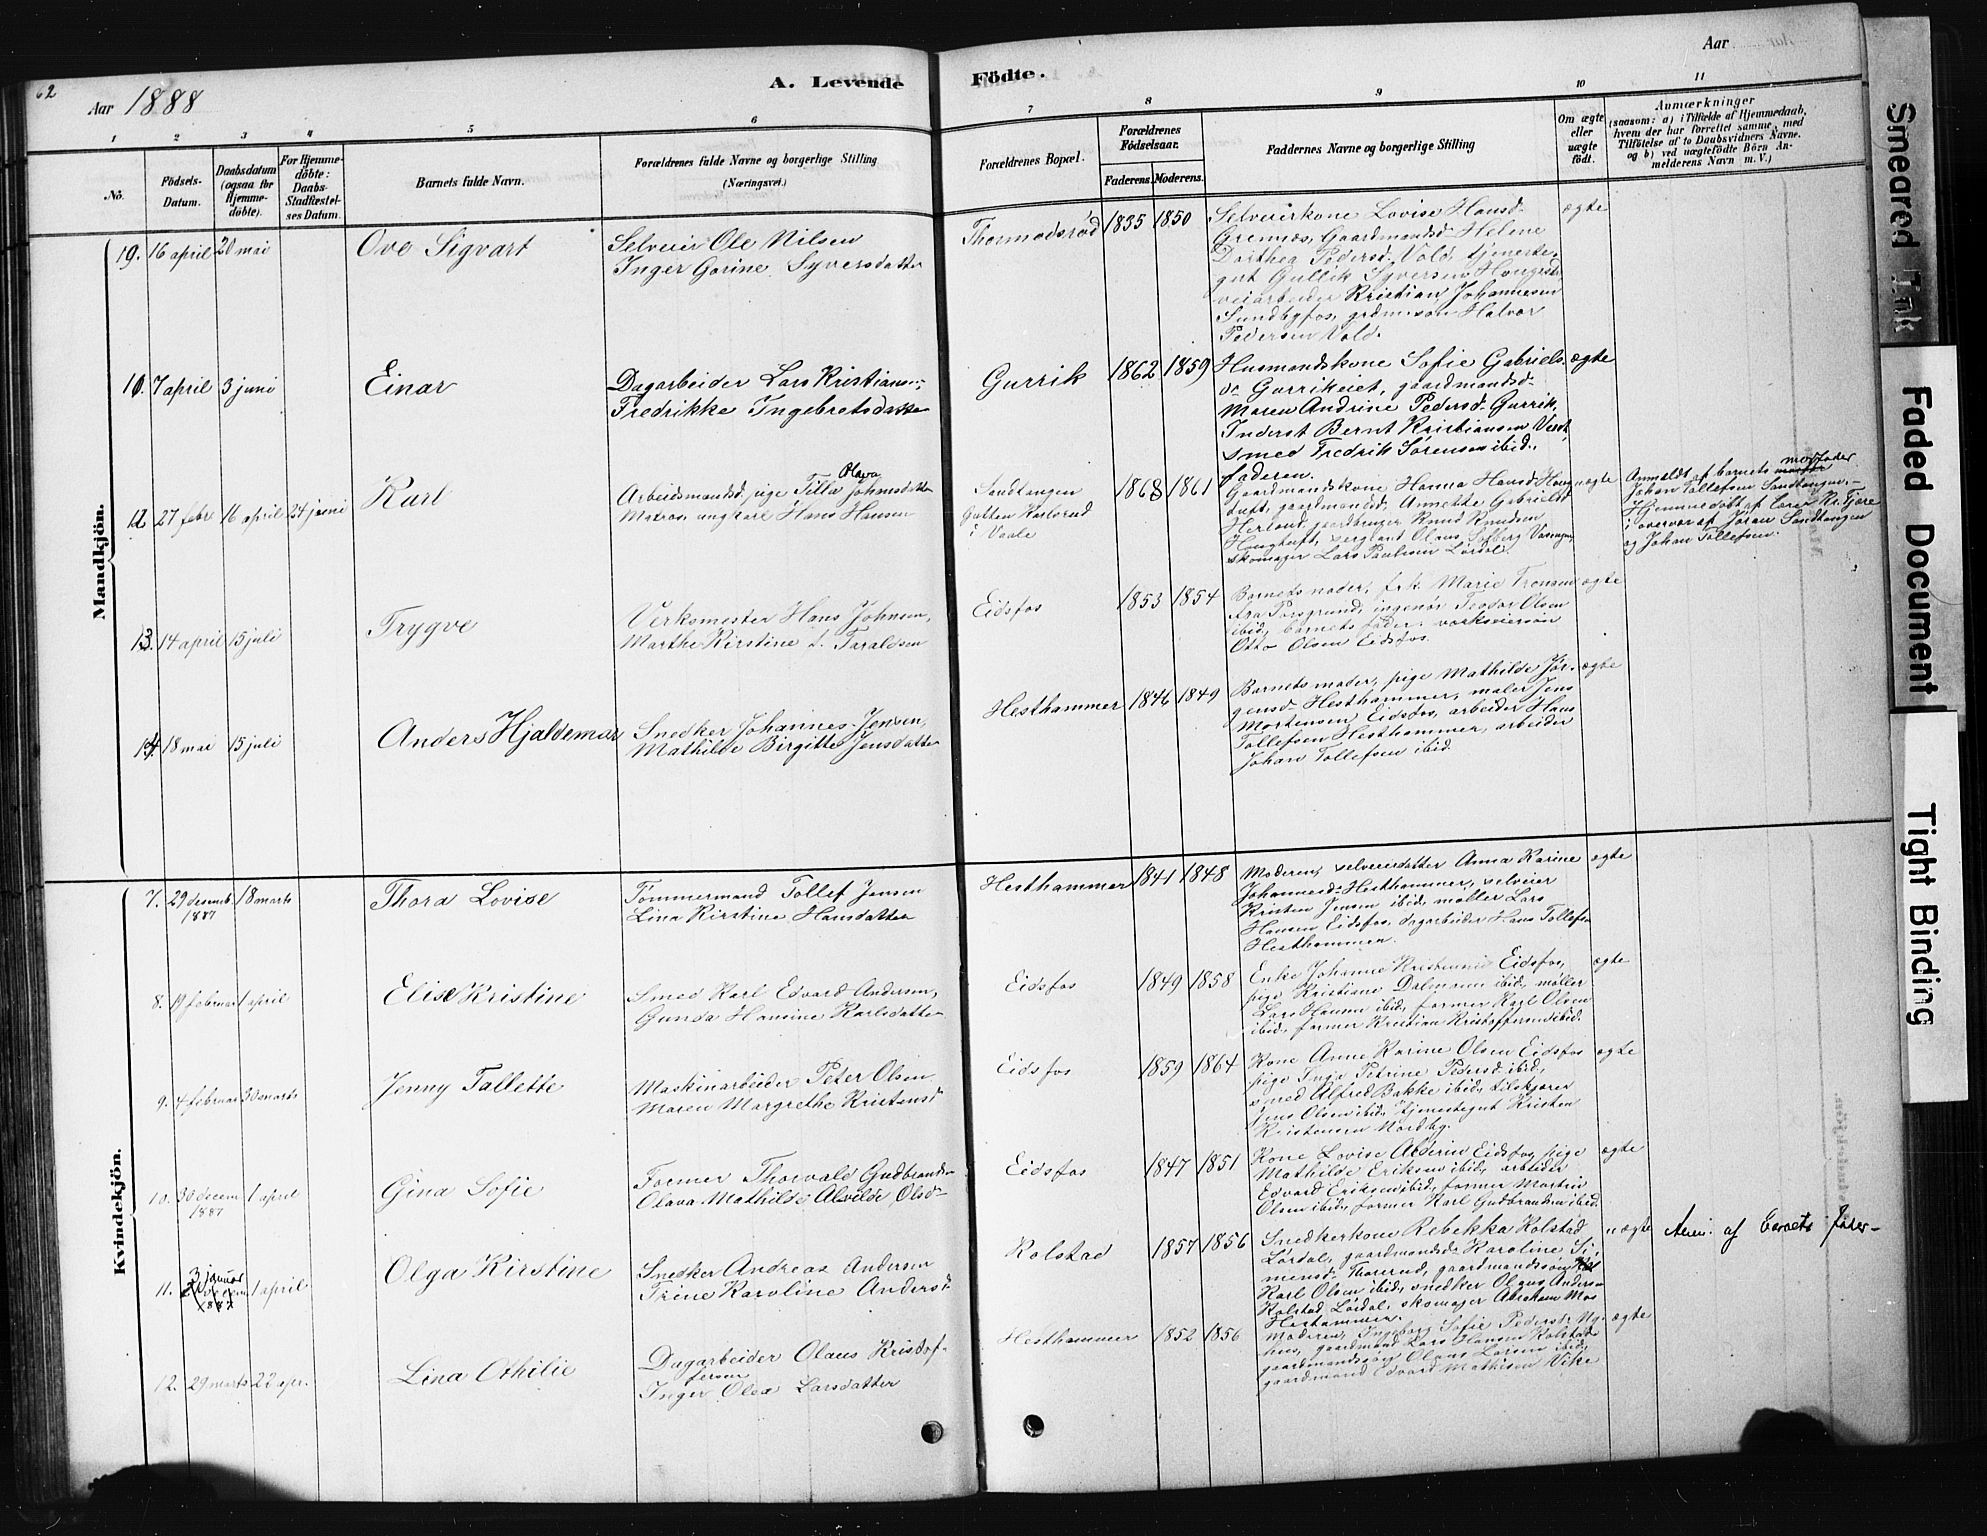 62
Aar 1888
A. Levende
1
2
3
4
5
6
No.
Födsels-
Datum.
Daabsdatum
(ogsaa for
Hjemme-
döbte).
For Hjemme-
döbte:
Daabs-
Stadfæstel-
ses Datum.
Barnets fulde Navn.
Forældrenes fulde Navne og borgerlige Stilling
(Næringsvei.)
Mandkjön.
16 april 20 mai
Ove Sigvart
Selveier Ole Nilsen
Inger Gorine Syversdatter
7 april 3 juni
Einar
Dagarbeider Lars Kristiansen,
Fredrikke Ingebretsdatter
12. 27 febr 16 april 24 juni
Karl
Olava
Arbeidsmandsd. pige Tilla Johnsdatter
Matros, ungkarl Hans Hansen
13. 14 april 15 juli
Trygve
Verksmester Hans Johnsen,
Marthe Kirstine f. Taraldsen
14. 18 mai 15 juli
Anders Hjaldemar
Snedker Johannes Jensen,
Mathilde Birgitte Jensdatter
Kvindekjön.
7. 29 desemb. 18 marts
1887
Thora Lovise
Tömmermand Tollef Jensen
Lina Kirstine Hansdatter
8. 19 februar 1 april
Elise Kristine
Smed Karl Edvard Andersen,
Gunda Hansine Karlsdatter
9. 4 februar 30 marts
Jenny Tallette
Maskinarbeider Peter Olsen
Maren Margrethe Kristensd
10. 30 decem 1 april
1887
Gina Sofie
Former Thorvald Gudbrands-
Olava Mathilde Alvilde Olsd-
3 januar
11. 1 april
1887
Olga Kirstine
Snedker Andreas Andersen
Trine Karoline Andersd
12. 29 marts 22 apr.
Lina Othilie
Dagarbeider Olaus Kristof-
fersen
Inger Olea Larsdatter
Födte.
Aar
7
8
9
10
11
Forældrenes Bopæl.
Forældrenes
Födselsaar.
Faderens. Moderens.
Faddernes Navne og borgerlige Stilling
Om ægte
eller
uægte
födt.
Anmærkninger
(saasom: a) i Tilfælde af Hjemmedaab,
hvem der har forrettet samme, med
Tilföielse af to Daabsvidners Navne,
og b) ved uægtefödte Börn An-
melderens Navn m. V.)
Thormodsröd 1835 1850
Selveierkone Lovise Hansd-
Grennes, Gaardmandsd- Helene
Dorthea Pedersd. Vold, tjeneste-
gut Gullik Syversen
veiarbeider Kristian Johannesen
Sundbyfos, grdm.søn Halvor
Pedersen Vold.
ægte
Gurrik 1862 1859
Husmandskone Sofie Gabriels-
d- Gurrikeiet, gaardmandsd-
Maren Andrine Pedersd- Gurrik,
Inderst Bernt Kristiansen
smed Fredrik Sörensen ibid.,
faderen.
ægte
Sandtangen
Karlsrud
i Vaale
1868 1861
Gaardmandskone Hanna Hansd
Annette Gabrielsd
gaardbruger Knud Knudsen
sergeant Olaus
skomager Lars Paulsen Lördal.
uægte
Anmeldt af barnets morfader
Johan Tollefsen Sandtangen.-
Hjemmedöbt af
i overvær af Joran Sandtangen
og Johan Tollefsen.
Eidsfos 1853 1854
Barnets moder, frk Marie Tronsen
fra Porsgrund, ingeniör Teodor Olsen
ibid, barnets fader,
Otto Olsen Eidsfos
ægte
Hesthammer 1846 1849
Barnets moder, pige Mathilde Jör-
gensd- Hesthammer, maler Jens
Mortensen Eidsfos, arbeider Hans
Tollefsen Hesthammer, arbeider
Johan Tollefsen ibid.
ægte
Hesthammer 1841 1848
Moderen, selveierdatter Anna Karine
Johannesd- Hesthammer, selveier
Kristen Jensen ibid, möller Lars
Hansen Eidsfos, dagarbeider Hans Tollefsen
Hesthammer.
ægte
Eidsfos 1849 1858
Enke Johanne Kristensen Eidsfos,
pige Kristiane Dalmann ibid, möller
Lars Hansen ibid, former Karl Olsen
ibid, former Kristian Kristoffersen ibid.
ægte
Eidsfos 1859 1864
Kone Anne Karine Olsen Eidsfos
pige Inga Petrine Pedersd- ibid,
smed Alfred Bakke ibid,
Jens Olsen ibid, tjenestegut Kristen
Kristensen Nordby.
ægte
Eidsfos 1847 1851
Kone Lovise Eidsfos, pige
Mathilde Eriksen ibid, arbeider
Edvard Eriksen ibid, former Martin
Olsen ibid, former Karl Gudbrandsen ibid.
ægte
Kolstad 1857 1856
Snedkerkone Rebekka Kolstad
Lördal, gaardmandsd- Karoline Si-
mensd- Thorerud, gaardmandssön
Karl Olsen ibid, snedker Olaus Andersen
Kolstad, Lördal, skomager Abraham Moe
Hesthammer.
uægte
af Barnets Fader-
Hesthammer 1852 1856
Moderen, Ingeborg Sofie Pedersd- Ny-
hus, gaardmand Lars Hansen Kolstad
gaardmandssön Olaus Larsen ibid,
gaardmand Edvard Mathisen Vike
ægte
Smeared Ink
Faded Document
Tight Binding